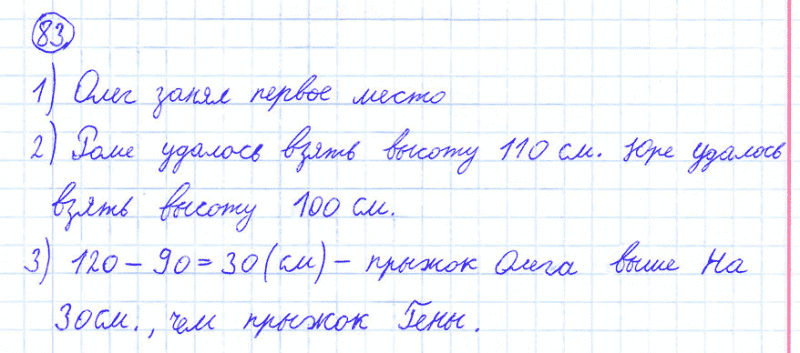 83
1) Олег занял первое место
2) Роме удалось взять высоту 110 см. Юре удалось
взять высоту 100 см.
3) 120 - 90 = 30 (см) - прыжок Олега выше на
30 см., чем прыжок Гены.